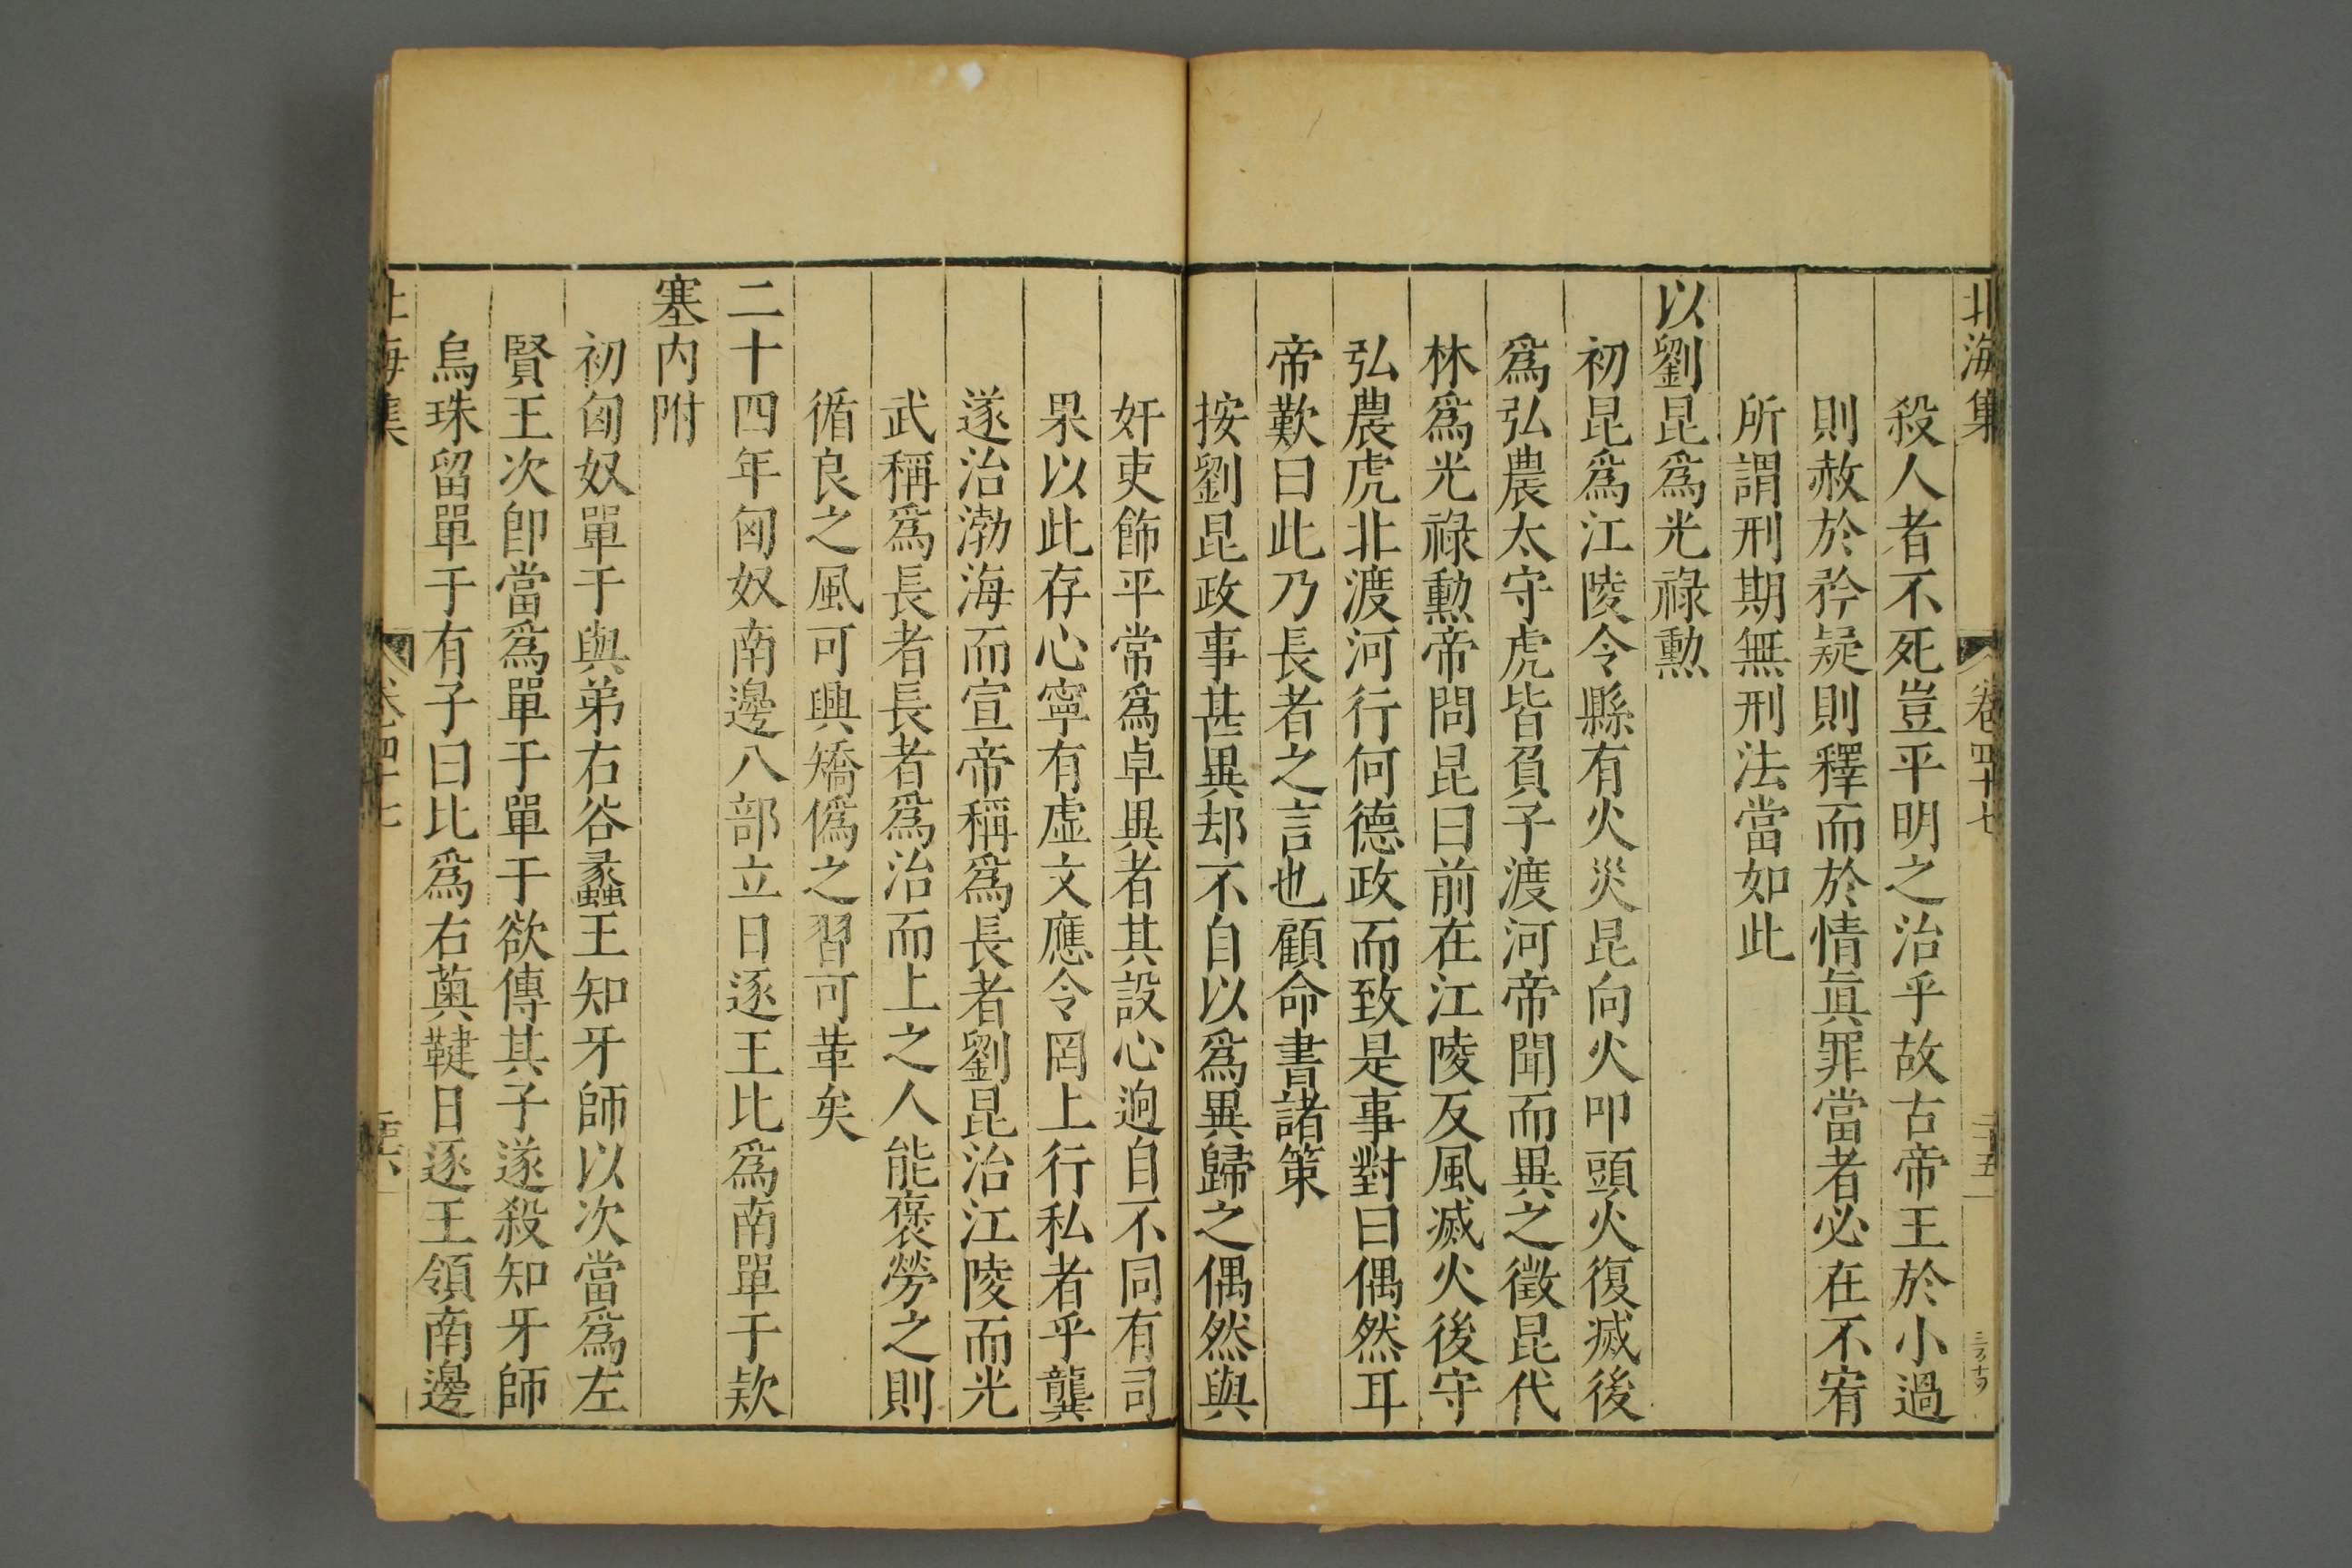 北海集 卷四十七 二十五
殺人者不死豈平明之治乎故古帝王於小過
則赦於矜疑則釋而於情眞罪當者必在不宥
所謂刑期無刑法當如此
以劉昆爲光祿勲
初昆爲江陵令縣有火災昆向火叩頭火復滅後
爲弘農太守虎皆負子渡河帝聞而異之徵昆代
林爲光祿勲帝問昆曰前在江陵反風滅火後守
弘農虎北渡河行何德政而致是事對曰偶然耳
帝歎曰此乃長者之言也顧命書諸策
按劉昆政事甚異却不自以爲異歸之偶然與
奸吏飾平常爲卓異者其設心逈自不同有司
果以此存心寧有虛文應令罔上行私者乎龔
遂治渤海而宣帝稱爲長者劉昆治江陵而光
武稱爲長者長者爲治而上之人能褒勞之則
循良之風可興矯僞之習可革矣
二十四年匈奴南邊八部立日逐王比爲南單于欵
塞内附
初匈奴單于與弟右谷蠡王知牙師以次當爲左
賢王次卽當爲單于單于欲傳其子遂殺知牙師
烏珠留單于有子曰比爲右薁鞬日逐王領南邊
北海集 卷四十七 二十六